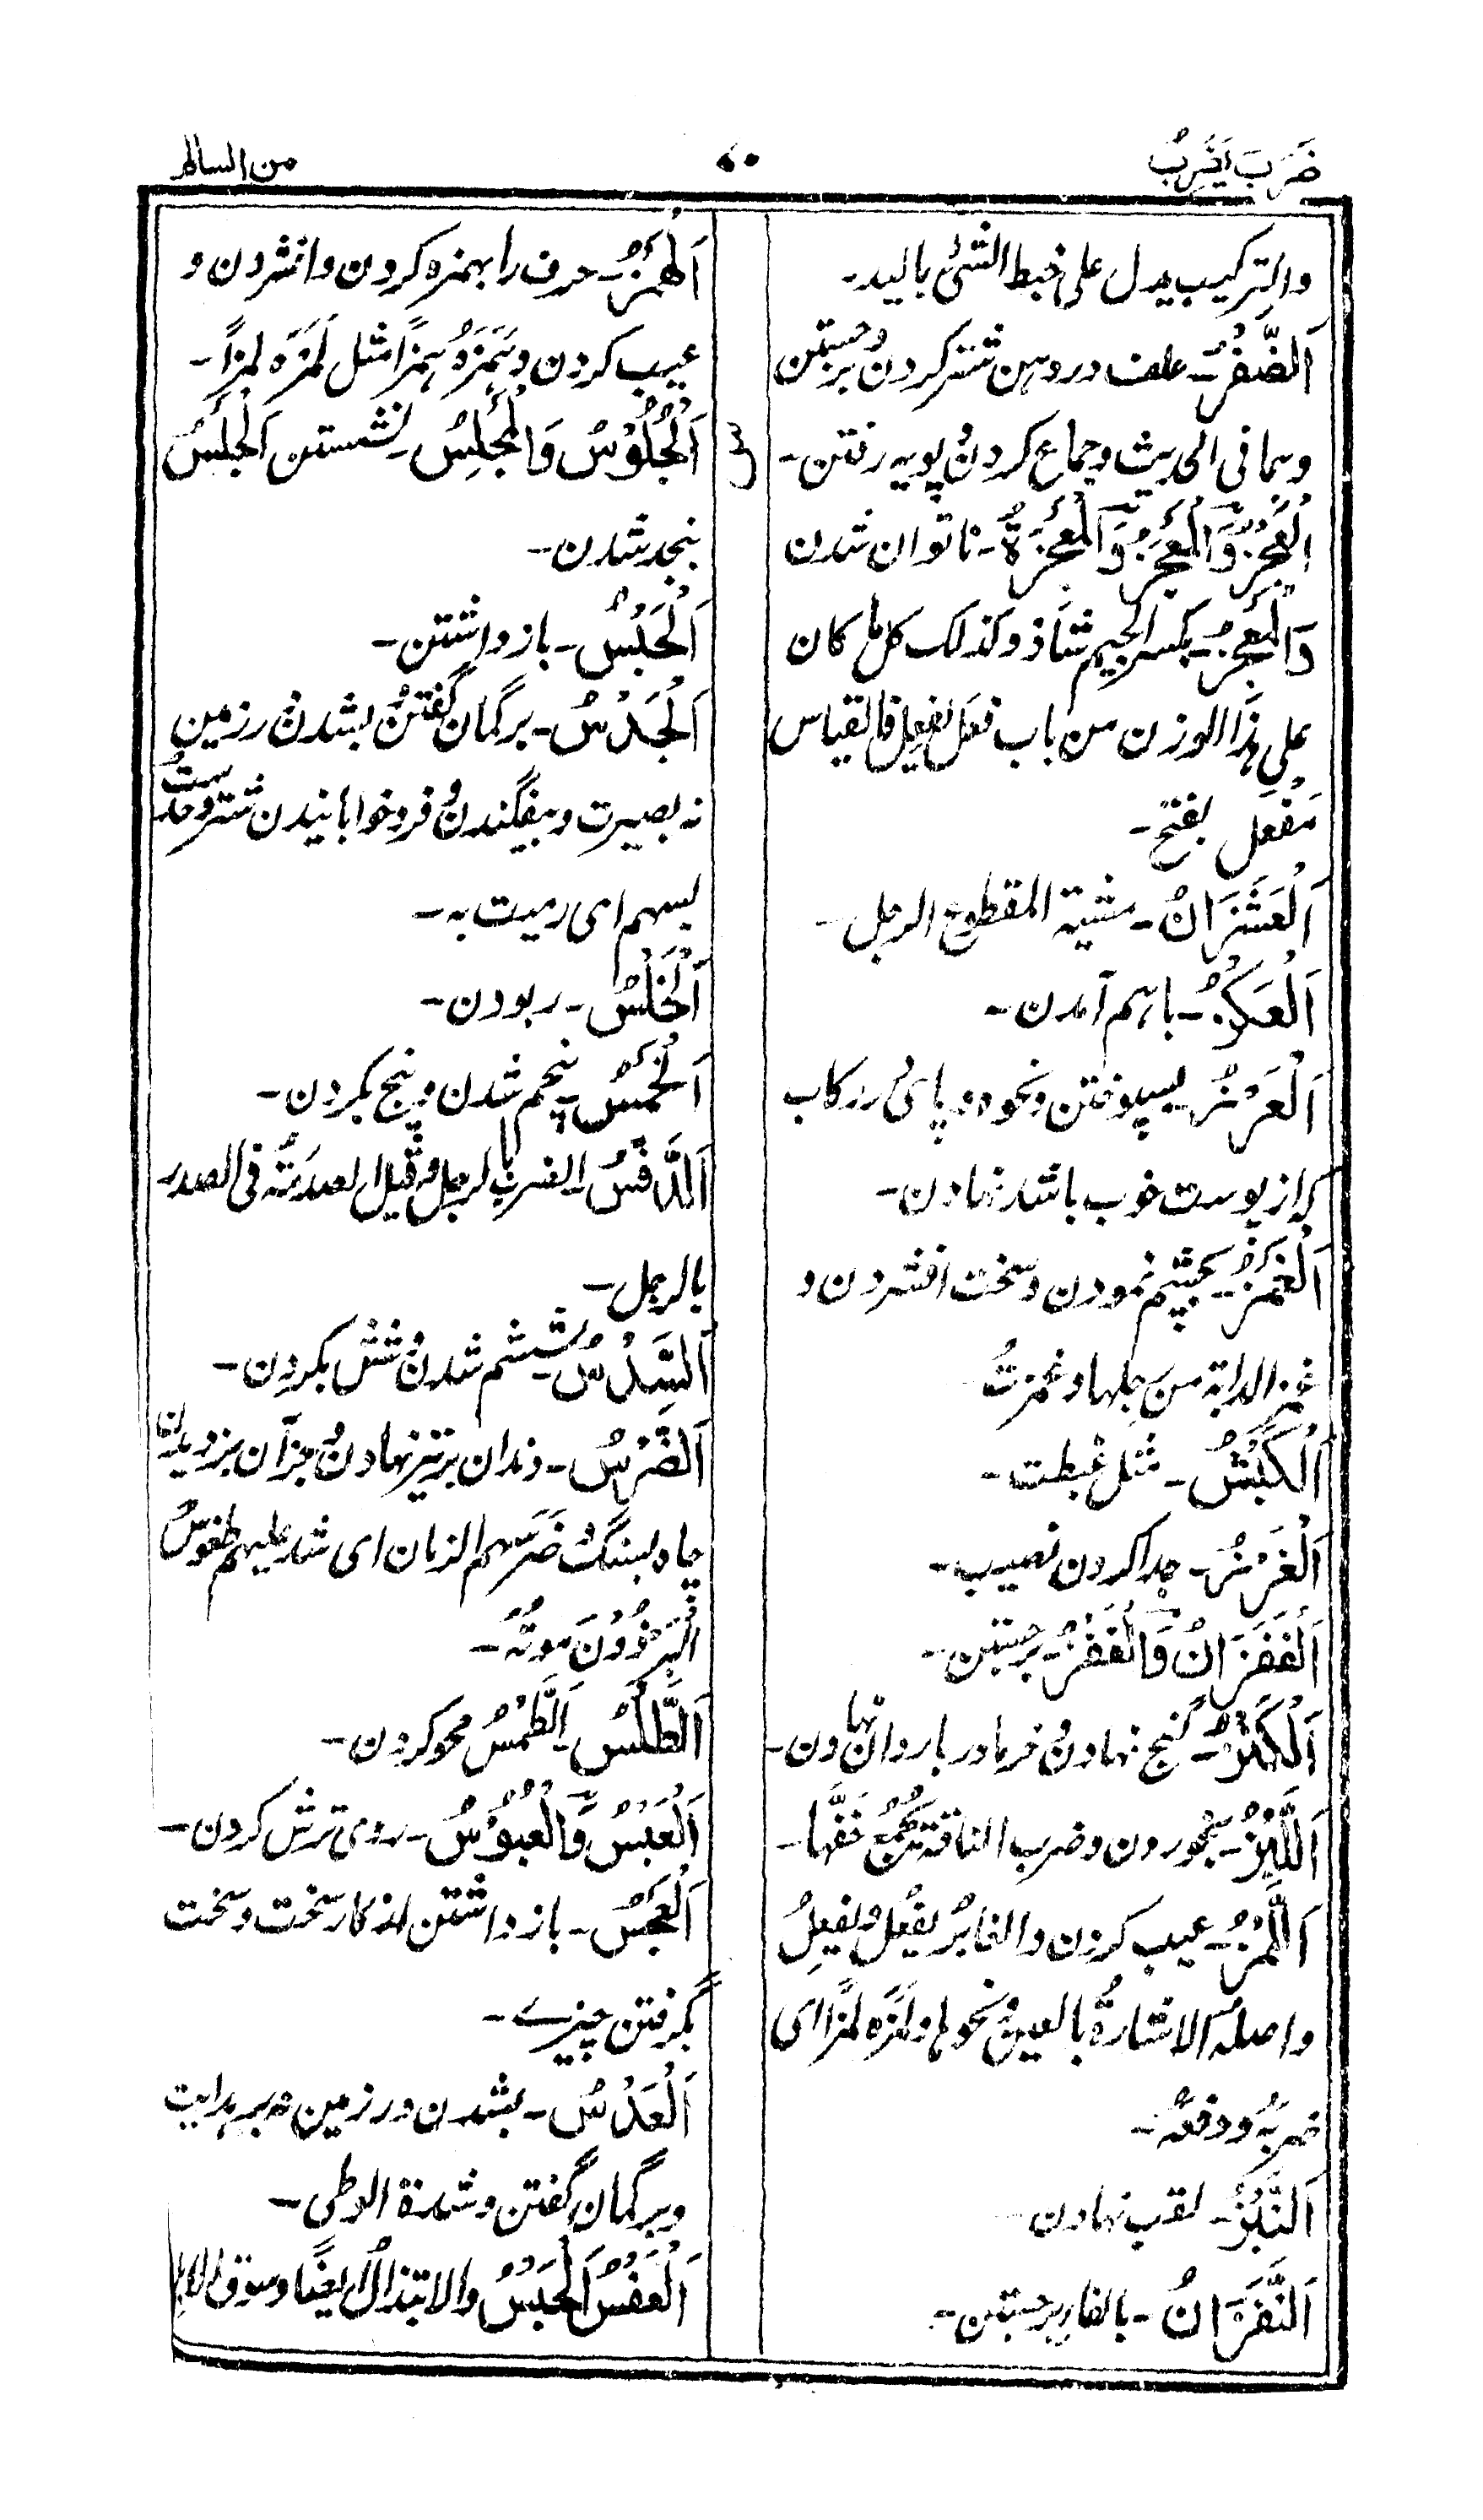 ضَرَبَ یَضْرِبُ
۶۰
من السالم
والترکیب یدل علی خبط الشئ بالید۔
اَلضَّفْزُ۔ علف در دہن شتر کردن وبرجستن
وہما فی الحدیث وجماع کردن وپویہ رفتن۔
اَلْعَجْزُ وَالْمَعْجَزُ وَالْمَعْجَزَةُ۔ ناتوان شدن
وَالْمَعْجِزُ۔ بکسر الجیم شاذ وکذلک کل ما کان
علی ہذا الوزن من باب فعَل یفعِل فالقیاس
مَفْعَل بفتح۔
اَلْعَشَزَانُ۔ مشیة المقطوع الرجل۔
اَلْعَکْزُ۔ باہم آمدن۔
اَلْغَرْزُ۔ بسپوختن ونحوہ وپای در رکاب
کہ از پوست خوب باشد نہادن۔
اَلْغَمْزُ۔ بچشم نمودن وسخت افشردن و
غمز الدابة من رجلہا وغمزتُ
اَلْکَبْشُ۔ مثل غبطت۔
اَلْفَرْزُ۔ جدا کردن نصیب۔
اَلْقَفَزَانُ وَالْقَفْزُ۔ برجستن۔
اَلْکَنْزُ۔ گنج نہادن وخرما در باردان نہادن۔
اَللَّبْزُ۔ بخوردن وضرب الناقة بجُمْع خُفِّہا۔
اَللَّمْزُ۔ عیب کردن والغابرُ یفعُل ویفعِلُ
واصلہ الاشارةُ بالعین ونحوہا ولمَزَہ لمزًا ای
ضربہُ ودفعہُ۔
اَلنَّبْزُ۔ لقب نہادن
اَلنَّقَزَانُ۔ بالقاف برجستن۔
اَلْهَمْزُ۔ حرف را بہمزہ کردن وافشردن و
عیب کردن وہَمَزَہُ ہمزًا مثل لَمَزَہ لمزًا۔
س
اَلْجُلُوْسُ وَالْمَجْلِسُ۔ نشستن اَلْجَلْسُ
بنجد شدن۔
اَلْحَبْسُ۔ بازداشتن۔
اَلْحَدْسُ۔ برگمان گفتن وبشدن در زمین
نہ بصیرت وبیفگندن وفروخوابانیدن شتر وحدستُ
بسہم ای رمیت بہ۔
اَلْخَلْسُ۔ ربودن۔
اَلْخَمْسُ۔ پنجم شدن وپنج یک کردن۔
اَلدَّفْسُ۔ الضرب بالرجل وقیل الصدمۃ فی الصدر
بالرجل۔
اَلسَّدْسُ۔ ششم شدن وشش یک کردن۔
اَلضَّرْسُ۔ دندان بر تیر نہادن وجز آن بزدیدن
چاہ بسنگ وضرَسہم الزمان ای شد علیہم طفوسُ
البِرْذَوْنِ موتُہُ۔
اَلطَّلْسُ۔ اَلطَّمْسُ محو کردن۔
اَلْعَبْسُ وَالْعُبُوْسُ۔ روی ترش کردن۔
اَلْعَجْسُ۔ بازداشتن از کار سخت وسخت
گرفتن چیزے۔
اَلْعَدْسُ۔ بشدن در زمین نہ بر ہدایت
وبرگمان گفتن وشدة الوطی۔
اَلْعَفْسُ اَلْحَبْسُ والابتذالُ ایضًا وسوق الابل